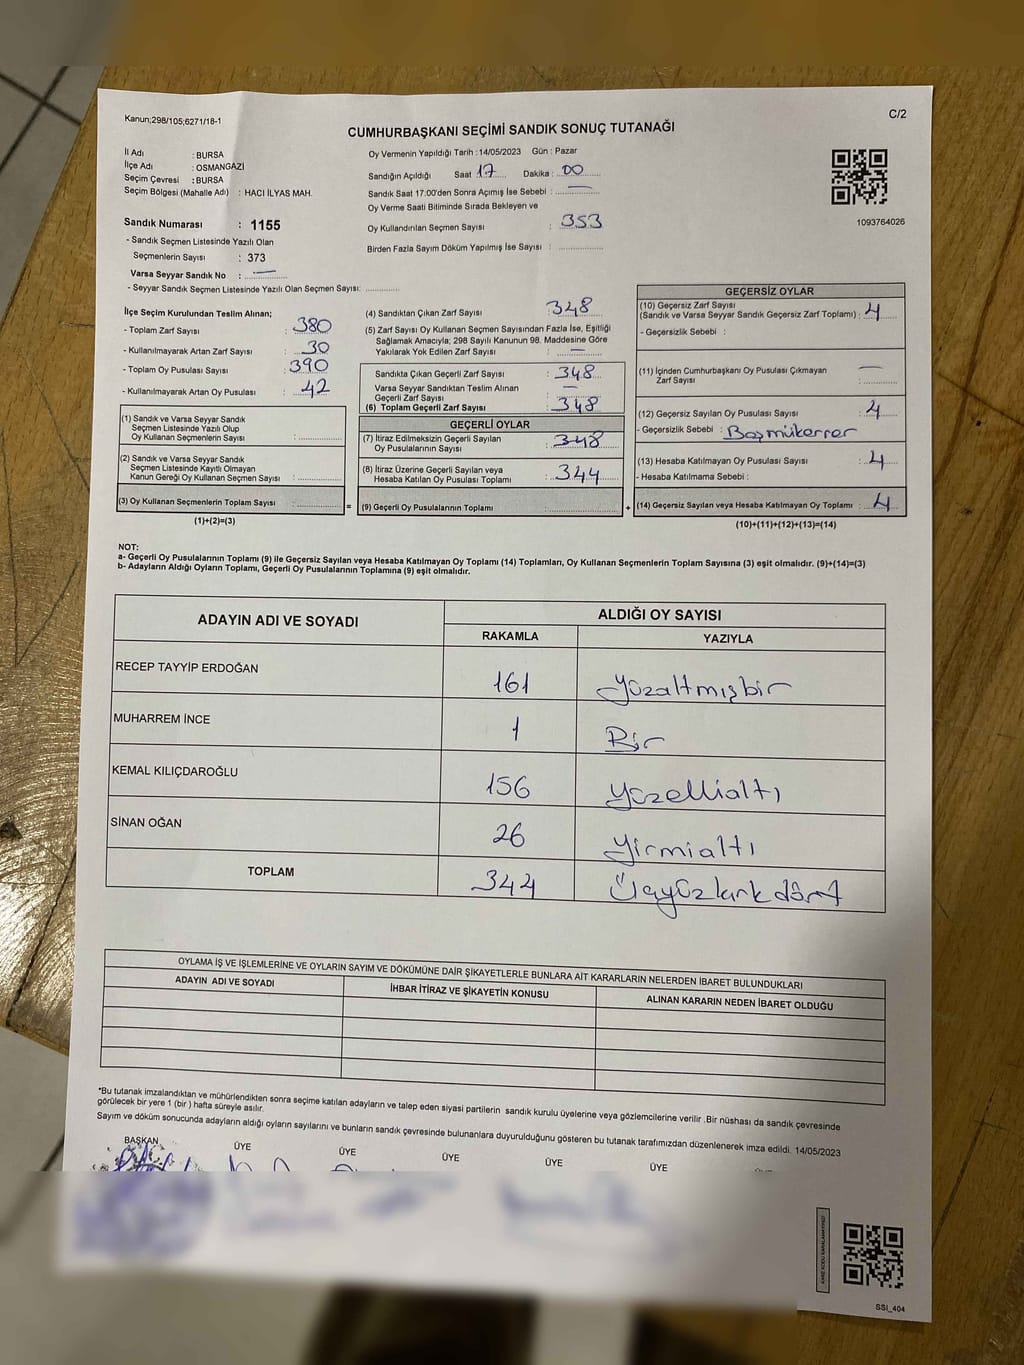 Kanun;298/105;6271/18-1
C/2
CUMHURBAŞKANI SEÇİMİ SANDIK SONUÇ TUTANAĞI
İl Adı : BURSA
İlçe Adı : OSMANGAZİ
Seçim Çevresi : BURSA
Seçim Bölgesi (Mahalle Adı) : HACI İLYAS MAH.
Oy Vermenin Yapıldığı Tarih :14/05/2023 Gün : Pazar
Sandığın Açıldığı Saat 17 Dakika : 00
Sandık Saat 17:00'den Sonra Açımış İse Sebebi : —
Oy Verme Saati Bitiminde Sırada Bekleyen ve
Oy Kullandırılan Seçmen Sayısı : 353
Birden Fazla Sayım Döküm Yapılmış İse Sayısı :
1093764026
Sandık Numarası : 1155
- Sandık Seçmen Listesinde Yazılı Olan
Seçmenlerin Sayısı : 373
Varsa Seyyar Sandık No : —
- Seyyar Sandık Seçmen Listesinde Yazılı Olan Seçmen Sayısı:
İlçe Seçim Kurulundan Teslim Alınan;
- Toplam Zarf Sayısı : 380
- Kullanılmayarak Artan Zarf Sayısı : 30
- Toplam Oy Pusulası Sayısı : 390
- Kullanılmayarak Artan Oy Pusulası : 42
(1) Sandık ve Varsa Seyyar Sandık
Seçmen Listesinde Yazılı Olup
Oy Kullanan Seçmenlerin Sayısı :
(2) Sandık ve Varsa Seyyar Sandık
Seçmen Listesinde Kayıtlı Olmayan
Kanun Gereği Oy Kullanan Seçmen Sayısı :
(3) Oy Kullanan Seçmenlerin Toplam Sayısı :
(1)+(2)=(3)
(4) Sandıktan Çıkan Zarf Sayısı : 348
(5) Zarf Sayısı Oy Kullanan Seçmen Sayısından Fazla İse, Eşitliği
Sağlamak Amacıyla; 298 Sayılı Kanunun 98. Maddesine Göre
Yakılarak Yok Edilen Zarf Sayısı : —
Sandıkta Çıkan Geçerli Zarf Sayısı : 348
Varsa Seyyar Sandıktan Teslim Alınan
Geçerli Zarf Sayısı : —
(6) Toplam Geçerli Zarf Sayısı : 348
GEÇERLİ OYLAR
(7) İtiraz Edilmeksizin Geçerli Sayılan
Oy Pusulalarının Sayısı : 348
(8) İtiraz Üzerine Geçerli Sayılan veya
Hesaba Katılan Oy Pusulası Toplamı : 344
= (9) Geçerli Oy Pusulalarının Toplamı : +
GEÇERSİZ OYLAR
(10) Geçersiz Zarf Sayısı
(Sandık ve Varsa Seyyar Sandık Geçersiz Zarf Toplamı) : 4
- Geçersizlik Sebebi :
(11) İçinden Cumhurbaşkanı Oy Pusulası Çıkmayan
Zarf Sayısı : —
(12) Geçersiz Sayılan Oy Pusulası Sayısı : 4
- Geçersizlik Sebebi :
(13) Hesaba Katılmayan Oy Pusulası Sayısı : 4
- Hesaba Katılmama Sebebi :
(14) Geçersiz Sayılan veya Hesaba Katılmayan Oy Toplamı : 4
(10)+(11)+(12)+(13)=(14)
NOT:
a- Geçerli Oy Pusulalarının Toplamı (9) ile Geçersiz Sayılan veya Hesaba Katılmayan Oy Toplamı (14) Toplamları, Oy Kullanan Seçmenlerin Toplam Sayısına (3) eşit olmalıdır. (9)+(14)=(3)
b- Adayların Aldığı Oyların Toplamı, Geçerli Oy Pusulalarının Toplamına (9) eşit olmalıdır.
ADAYIN ADI VE SOYADI ALDIĞI OY SAYISI
RAKAMLA YAZIYLA
RECEP TAYYİP ERDOĞAN 161 yüzaltmışbir
MUHARREM İNCE 1 Bir
KEMAL KILIÇDAROĞLU 156 yüzellialtı
SİNAN OĞAN 26 yirmialtı
TOPLAM 344 Üçyüzkırkdört
OYLAMA İŞ VE İŞLEMLERİNE VE OYLARIN SAYIM VE DÖKÜMÜNE DAİR ŞİKAYETLERLE BUNLARA AİT KARARLARIN NELERDEN İBARET BULUNDUKLARI
ADAYIN ADI VE SOYADI İHBAR İTİRAZ VE ŞİKAYETİN KONUSU ALINAN KARARIN NEDEN İBARET OLDUĞU
*Bu tutanak imzalandıktan ve mühürlendikten sonra seçime katılan adayların ve talep eden siyasi partilerin sandık kurulu üyelerine veya gözlemcilerine verilir .Bir nüshası da sandık çevresinde
görülecek bir yere 1 (bir ) hafta süreyle asılır.
Sayım ve döküm sonucunda adayların aldığı oyların sayılarını ve bunların sandık çevresinde bulunanlara duyurulduğunu gösteren bu tutanak tarafımızdan düzenlenerek imza edildi. 14/05/2023
BAŞKAN ÜYE ÜYE ÜYE ÜYE ÜYE
SSI_404